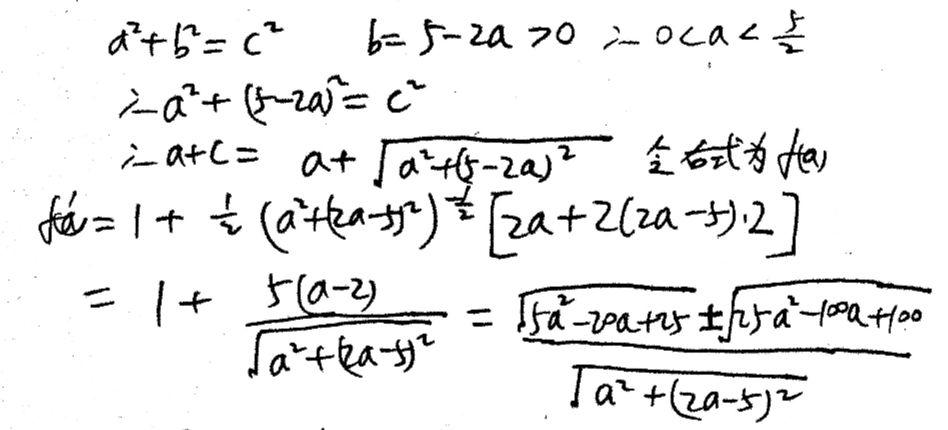 a²+b²=c² b=5-2a>0 ∴0<a<5/2
∴a²+(5-2a)²=c²
∴a+c= a+√(a²+(5-2a)²) 令右式为f(a)
f'(a)=1+1/2(a²+(2a-5)²)^(-1/2)[2a+2(2a-5)·2]
=1+5(a-2)/√(a²+(2a-5)²)=(√(5a²-20a+25)±√(25a²-100a+100))/√(a²+(2a-5)²)